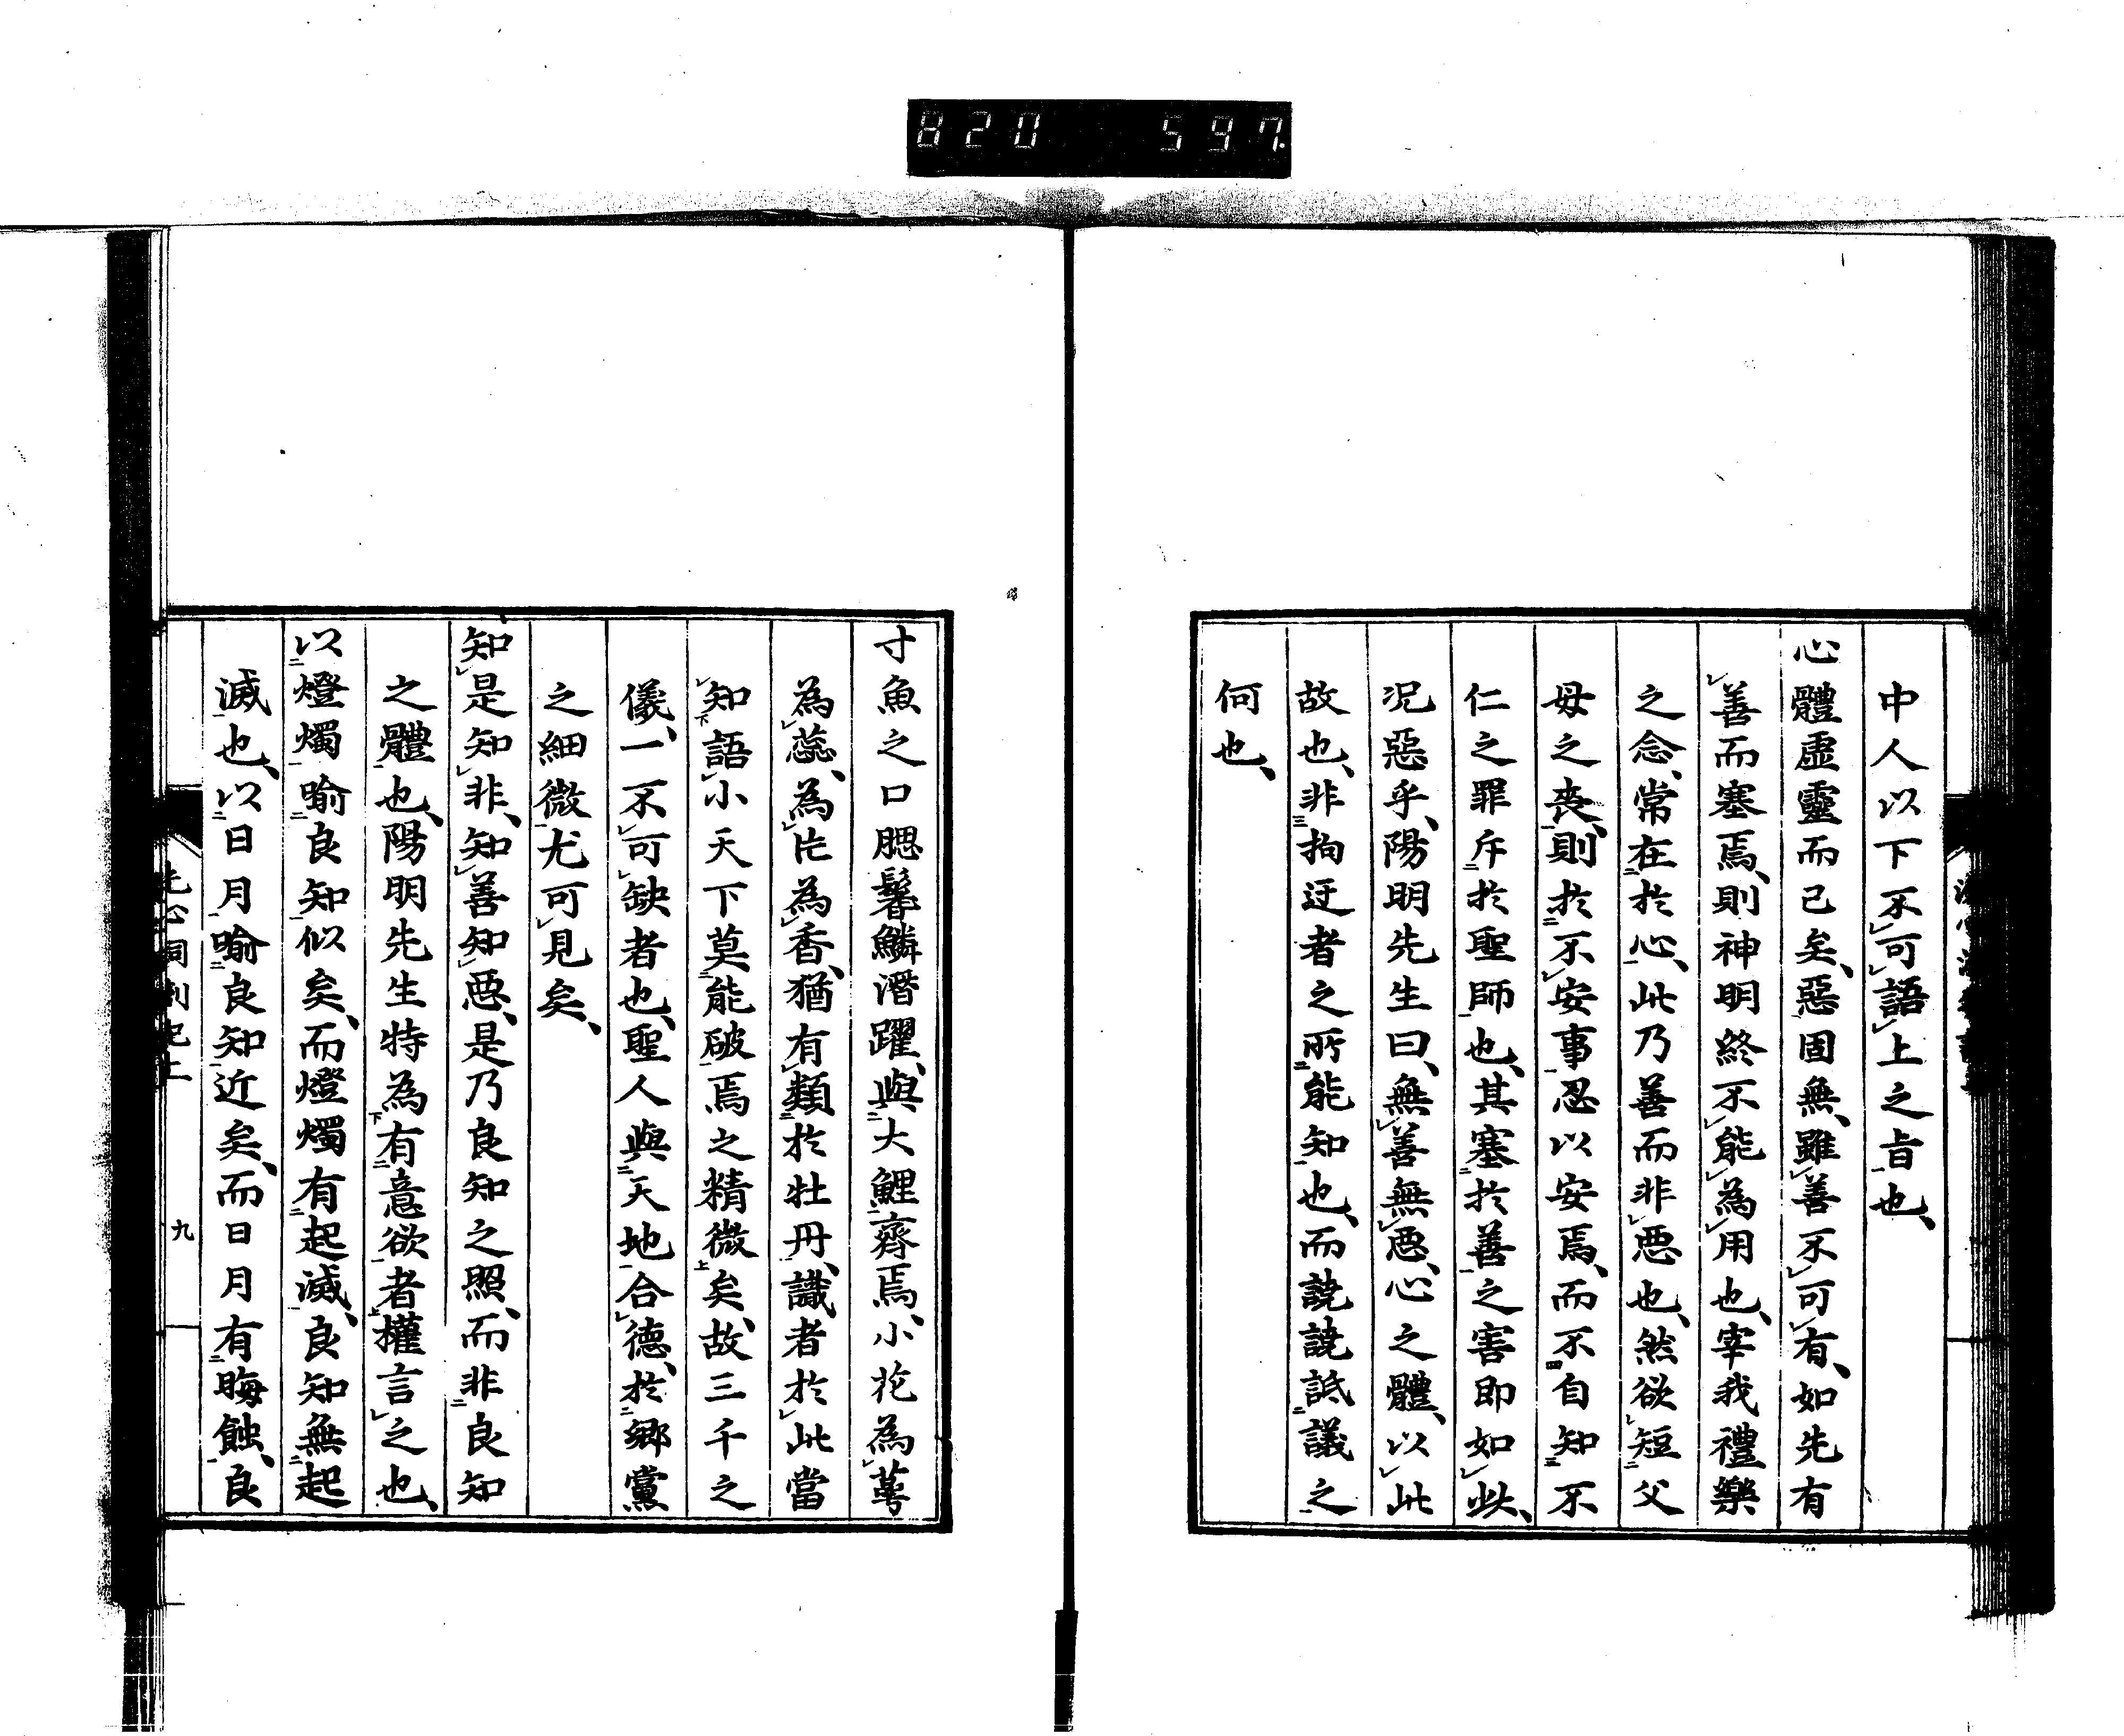 820 597
中人以下不可語上之旨也、
心體虛靈而已矣、惡固無、雖善不可有、如先有
善而塞焉、則神明終不能為用也、宰我禮樂
之念、常在於心、此乃善而非惡也、然欲短父
母之喪、則於不安事忍以安焉、而不自知不
仁之罪斥於聖師也、其塞於善之害即如此、
况惡乎、陽明先生曰、無善無惡、心之體、以此
故也、非拘迂者之所能知也、而譊譊詆議之
何也、
寸魚之口腮鬐鱗潛躍、與大鯉齊焉、小花為萼
為蕊、為片為香、猶有類於牡丹、識者於此當
知語小天下莫能破焉之精微矣、故三千之
儀、一不可缺者也、聖人與天地合德、於鄉黨
之細微尤可見矣、
知是知非、知善知惡、是乃良知之照、而非良知
之體也、陽明先生特為有意欲者權言之也、
以燈燭喻良知似矣、而燈燭有起滅、良知無起
滅也、以日月喻良知近矣、而日月有晦蝕、良
洗心洞劄記上
九